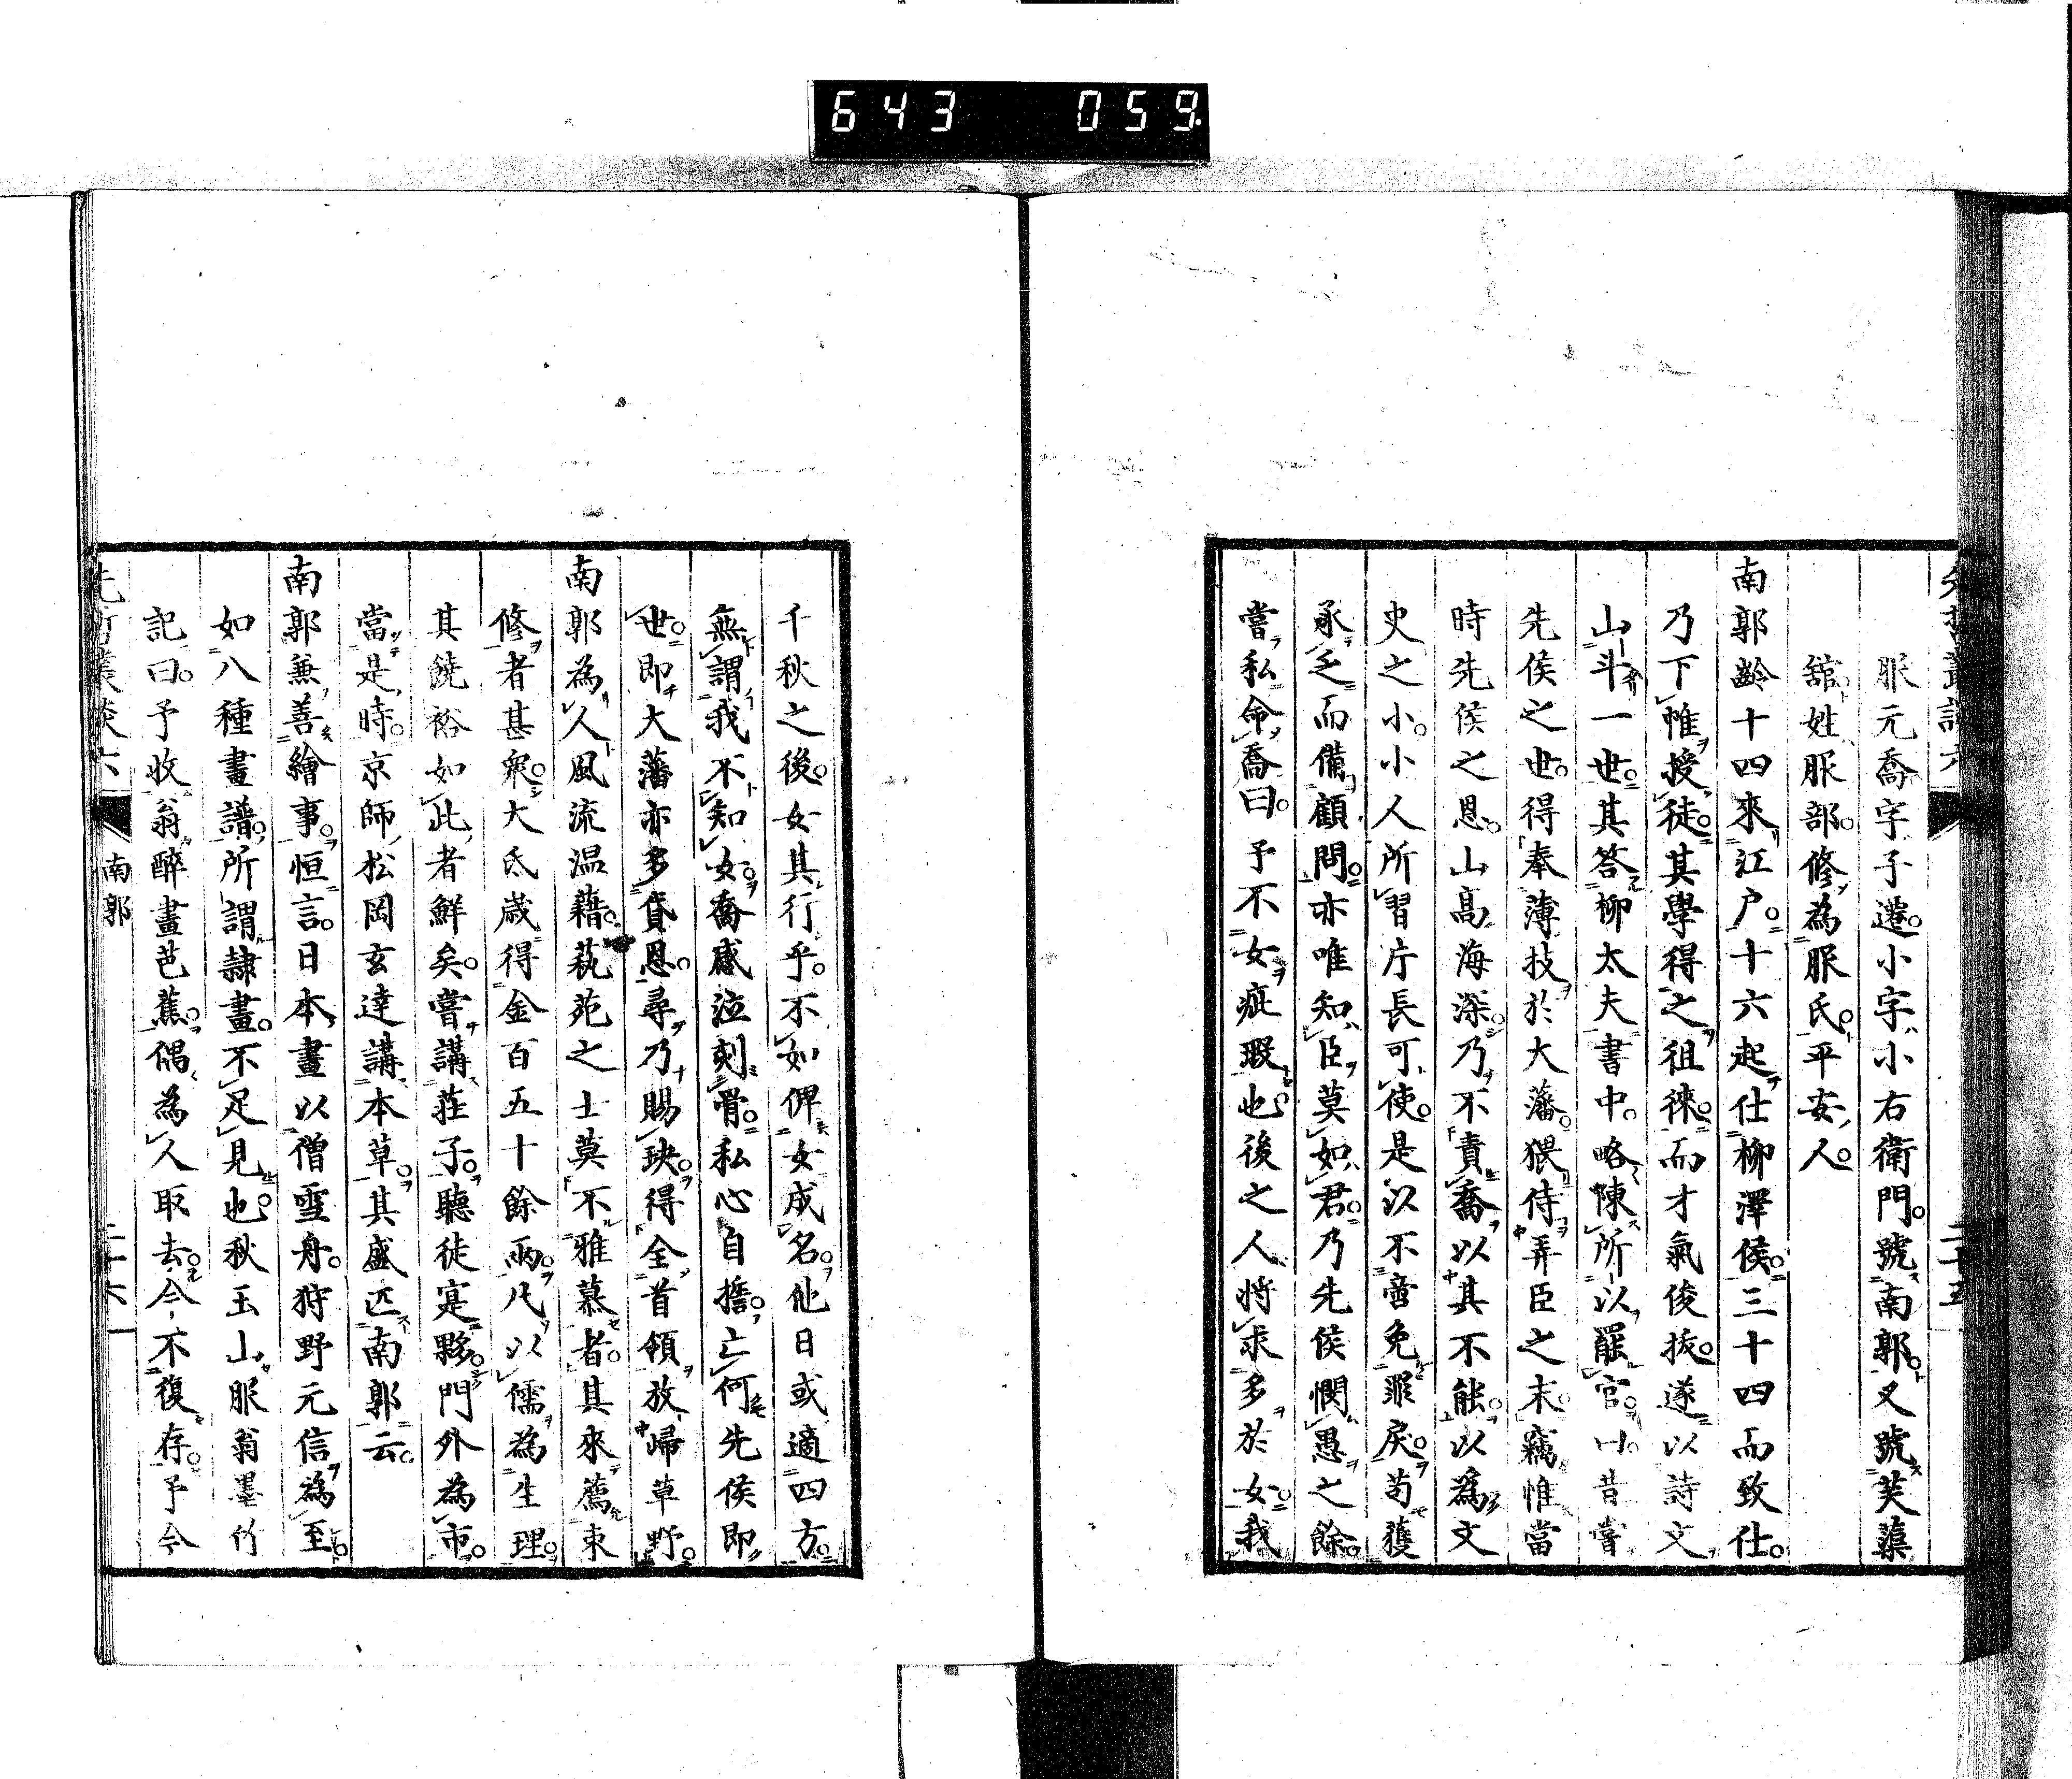 643 059.
服元喬字子遷。小字小右衛門。號南郭。又號芙蕖
舘。姓服部。修為服氏。平安人。
南郭齡十四來江户。十六起仕柳澤侯。三十四而致仕。
乃下帷授徒。其學得之徂徠。而才氣俊拔。遂以詩文
山斗一世。其答柳太夫書中。略陳所以罷官。曰。昔嘗
先侯之世。得奉薄技於大藩。猥侍弄臣之末。竊惟當
時先侯之恩。山高海深。乃不責喬以其不能。以為文
史之小。小人所習。庁長可使。是以不啻免罪戻。苟獲
承乏而備顧問。亦唯知臣莫如君。乃先侯憫愚之餘。
嘗私命喬曰。予不女疵瑕也。後之人將求多於女。我
千秋之後。女其行乎。不如俾女成名。他日或適四方。
無謂我不知女。喬感泣刻骨。私心自擔。亡何先侯即
世。即大藩亦多貸恩。尋乃賜玦。得全首領。放歸草野。
南郭為人風流温藉。蓻苑之士莫不雅慕者。其來薦束
修者甚衆。大氐歳得金百五十餘兩。凡以儒為生理。
其饒裕如此者鮮矣。嘗講莊子。聽徒寔夥。門外為市。
當是時。京師松岡玄達講本草。其盛匹南郭云。
南郭兼善繪事。恒言。日本畫以僧雪舟。狩野元信為至。
如八種畫譜。所謂隷畫。不足見也。秋玉山服翁墨竹
記曰。予收翁醉畫芭蕉。偶為人取去。今不復存。予今
先哲叢談六
南郭
二十六